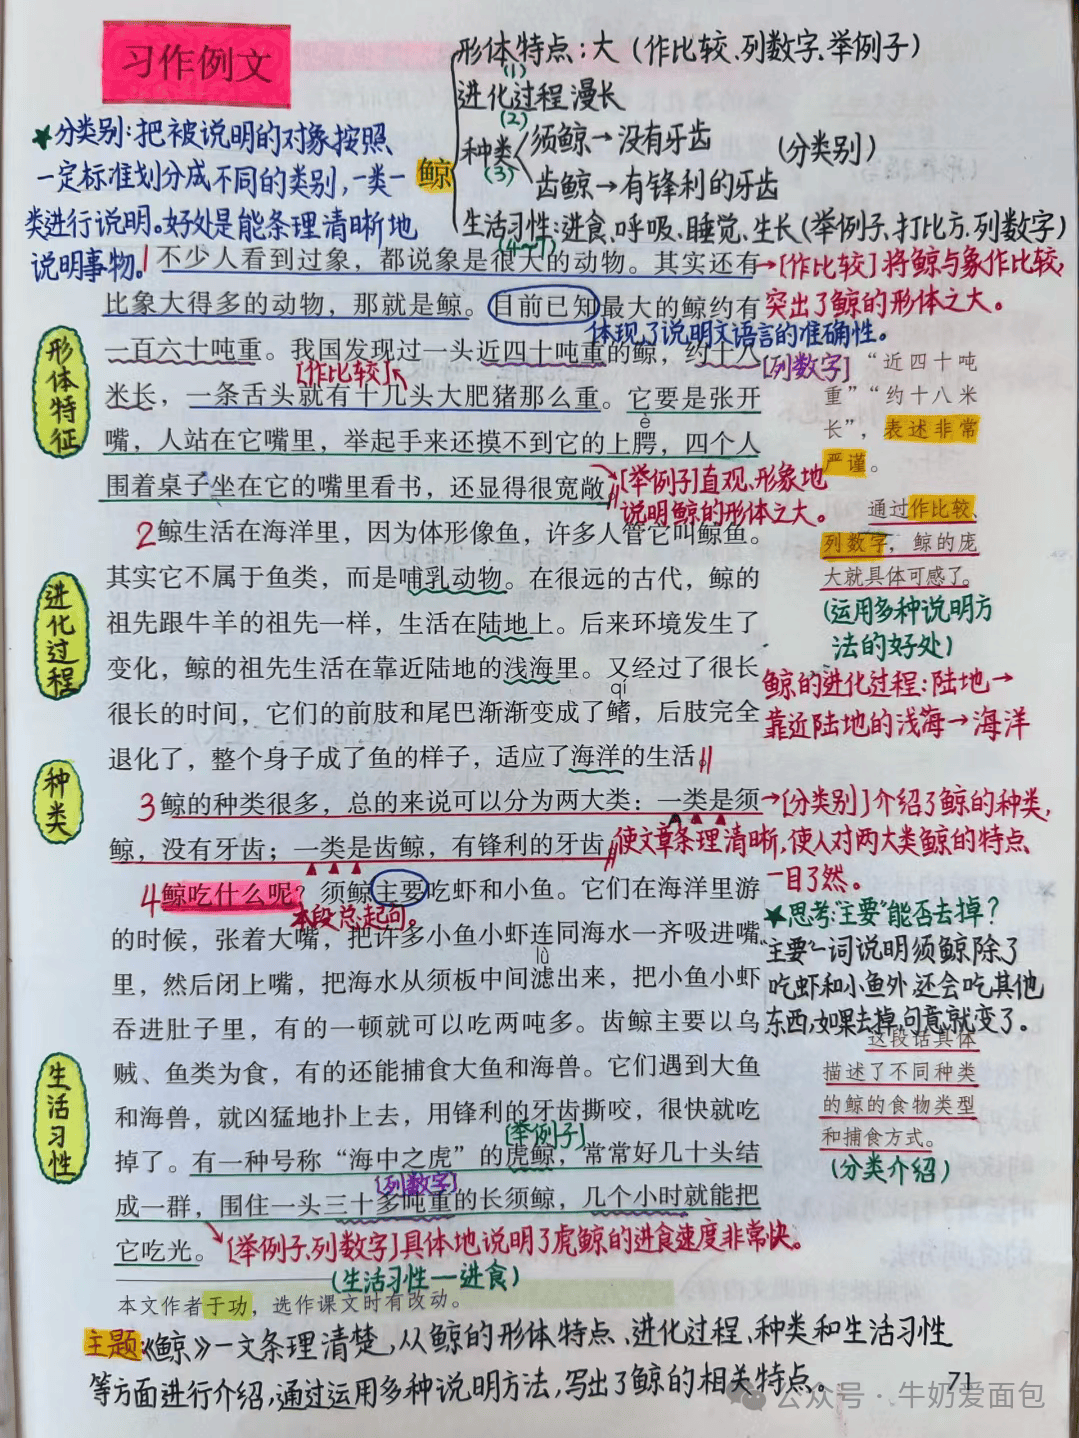 习作例文
形体特点：大（作比较、列数字、举例子）
(1)
进化过程漫长
(2)
种类
(3)
须鲸→没有牙齿
齿鲸→有锋利的牙齿
(分类别)
生活习性：进食、呼吸、睡觉、生长(举例子、打比方、列数字)
(4~7)
鲸
★分类别：把被说明的对象按照
一定标准划分成不同的类别，一类一
类进行说明。好处是能条理清晰地
说明事物。
1 不少人看到过象，都说象是很大的动物。其实还有
→[作比较]将鲸与象作比较，
比象大得多的动物，那就是鲸。目前已知最大的鲸约有
突出了鲸的形体之大。
体现了说明文语言的准确性。
一百六十吨重。我国发现过一头近四十吨重的鲸，约十八
[列数字]
[作比较]
米长，一条舌头就有十几头大肥猪那么重。它要是张开
è
嘴，人站在它嘴里，举起手来还摸不到它的上腭，四个人
围着桌子坐在它的嘴里看书，还显得很宽敞。
形体特征
“近四十吨
重”“约十八米
长”，表述非常
严谨。
[举例子]直观、形象地
说明鲸的形体之大。
通过作比较、
列数字，鲸的庞
大就具体可感了。
(运用多种说明方
法的好处)
2 鲸生活在海洋里，因为体形像鱼，许多人管它叫鲸鱼。
其实它不属于鱼类，而是哺乳动物。在很远的古代，鲸的
祖先跟牛羊的祖先一样，生活在陆地上。后来环境发生了
变化，鲸的祖先生活在靠近陆地的浅海里。又经过了很长
qí
很长的时间，它们的前肢和尾巴渐渐变成了鳍，后肢完全
退化了，整个身子成了鱼的样子，适应了海洋的生活。
进化过程
鲸的进化过程：陆地→
靠近陆地的浅海→海洋
种类
3 鲸的种类很多，总的来说可以分为两大类：一类是须
鲸，没有牙齿；一类是齿鲸，有锋利的牙齿。
→[分类别]介绍了鲸的种类，
使文章条理清晰，使人对两大类鲸的特点
一目了然。
4 鲸吃什么呢？须鲸主要吃虾和小鱼。它们在海洋里游
本段总起句。
的时候，张着大嘴，把许多小鱼小虾连同海水一齐吸进嘴
lǜ
里，然后闭上嘴，把海水从须板中间滤出来，把小鱼小虾
吞进肚子里，有的一顿就可以吃两吨多。齿鲸主要以乌
贼、鱼类为食，有的还能捕食大鱼和海兽。它们遇到大鱼
和海兽，就凶猛地扑上去，用锋利的牙齿撕咬，很快就吃
[举例子]
掉了。有一种号称“海中之虎”的虎鲸，常常好几十头结
[列数字]
成一群，围住一头三十多吨重的长须鲸，几个小时就能把
它吃光。
生活习性
★思考：“主要”能否去掉？
“主要”一词说明须鲸除了
吃虾和小鱼外，还会吃其他
东西，如果去掉，句意就变了。
这段话具体
描述了不同种类
的鲸的食物类型
和捕食方式。
(分类介绍)
[举例子、列数字]具体地说明了虎鲸的进食速度非常快。
(生活习性—进食)
本文作者于功，选作课文时有改动。
主题：《鲸》一文条理清楚，从鲸的形体特点、进化过程、种类和生活习性
等方面进行介绍，通过运用多种说明方法，写出了鲸的相关特点。
71
公众号·牛奶爱面包